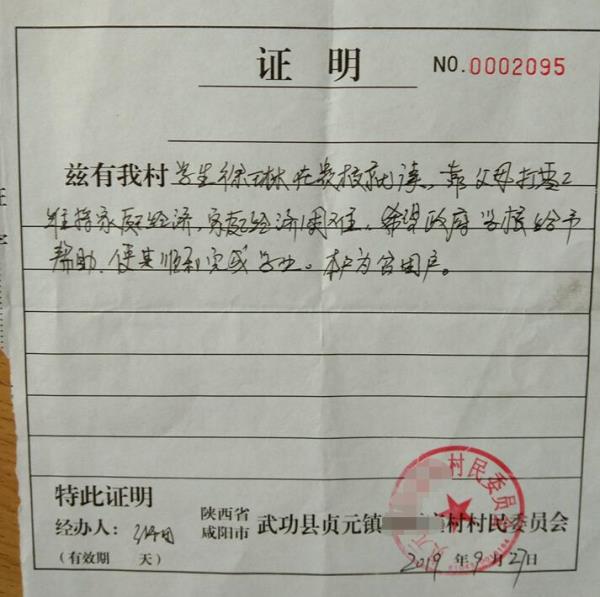 证 明
NO.0002095
兹有我村学生徐琳在贵校就读，靠父母打零工
维持家庭经济，家庭经济困难，希望政府学校给予
帮助，使其顺利完成学业。本户为贫困户。
特此证明
经办人：
（有效期 天）
陕西省
咸阳市
武功县贞元镇 村村民委员会
2019年9月27日
村民委员会